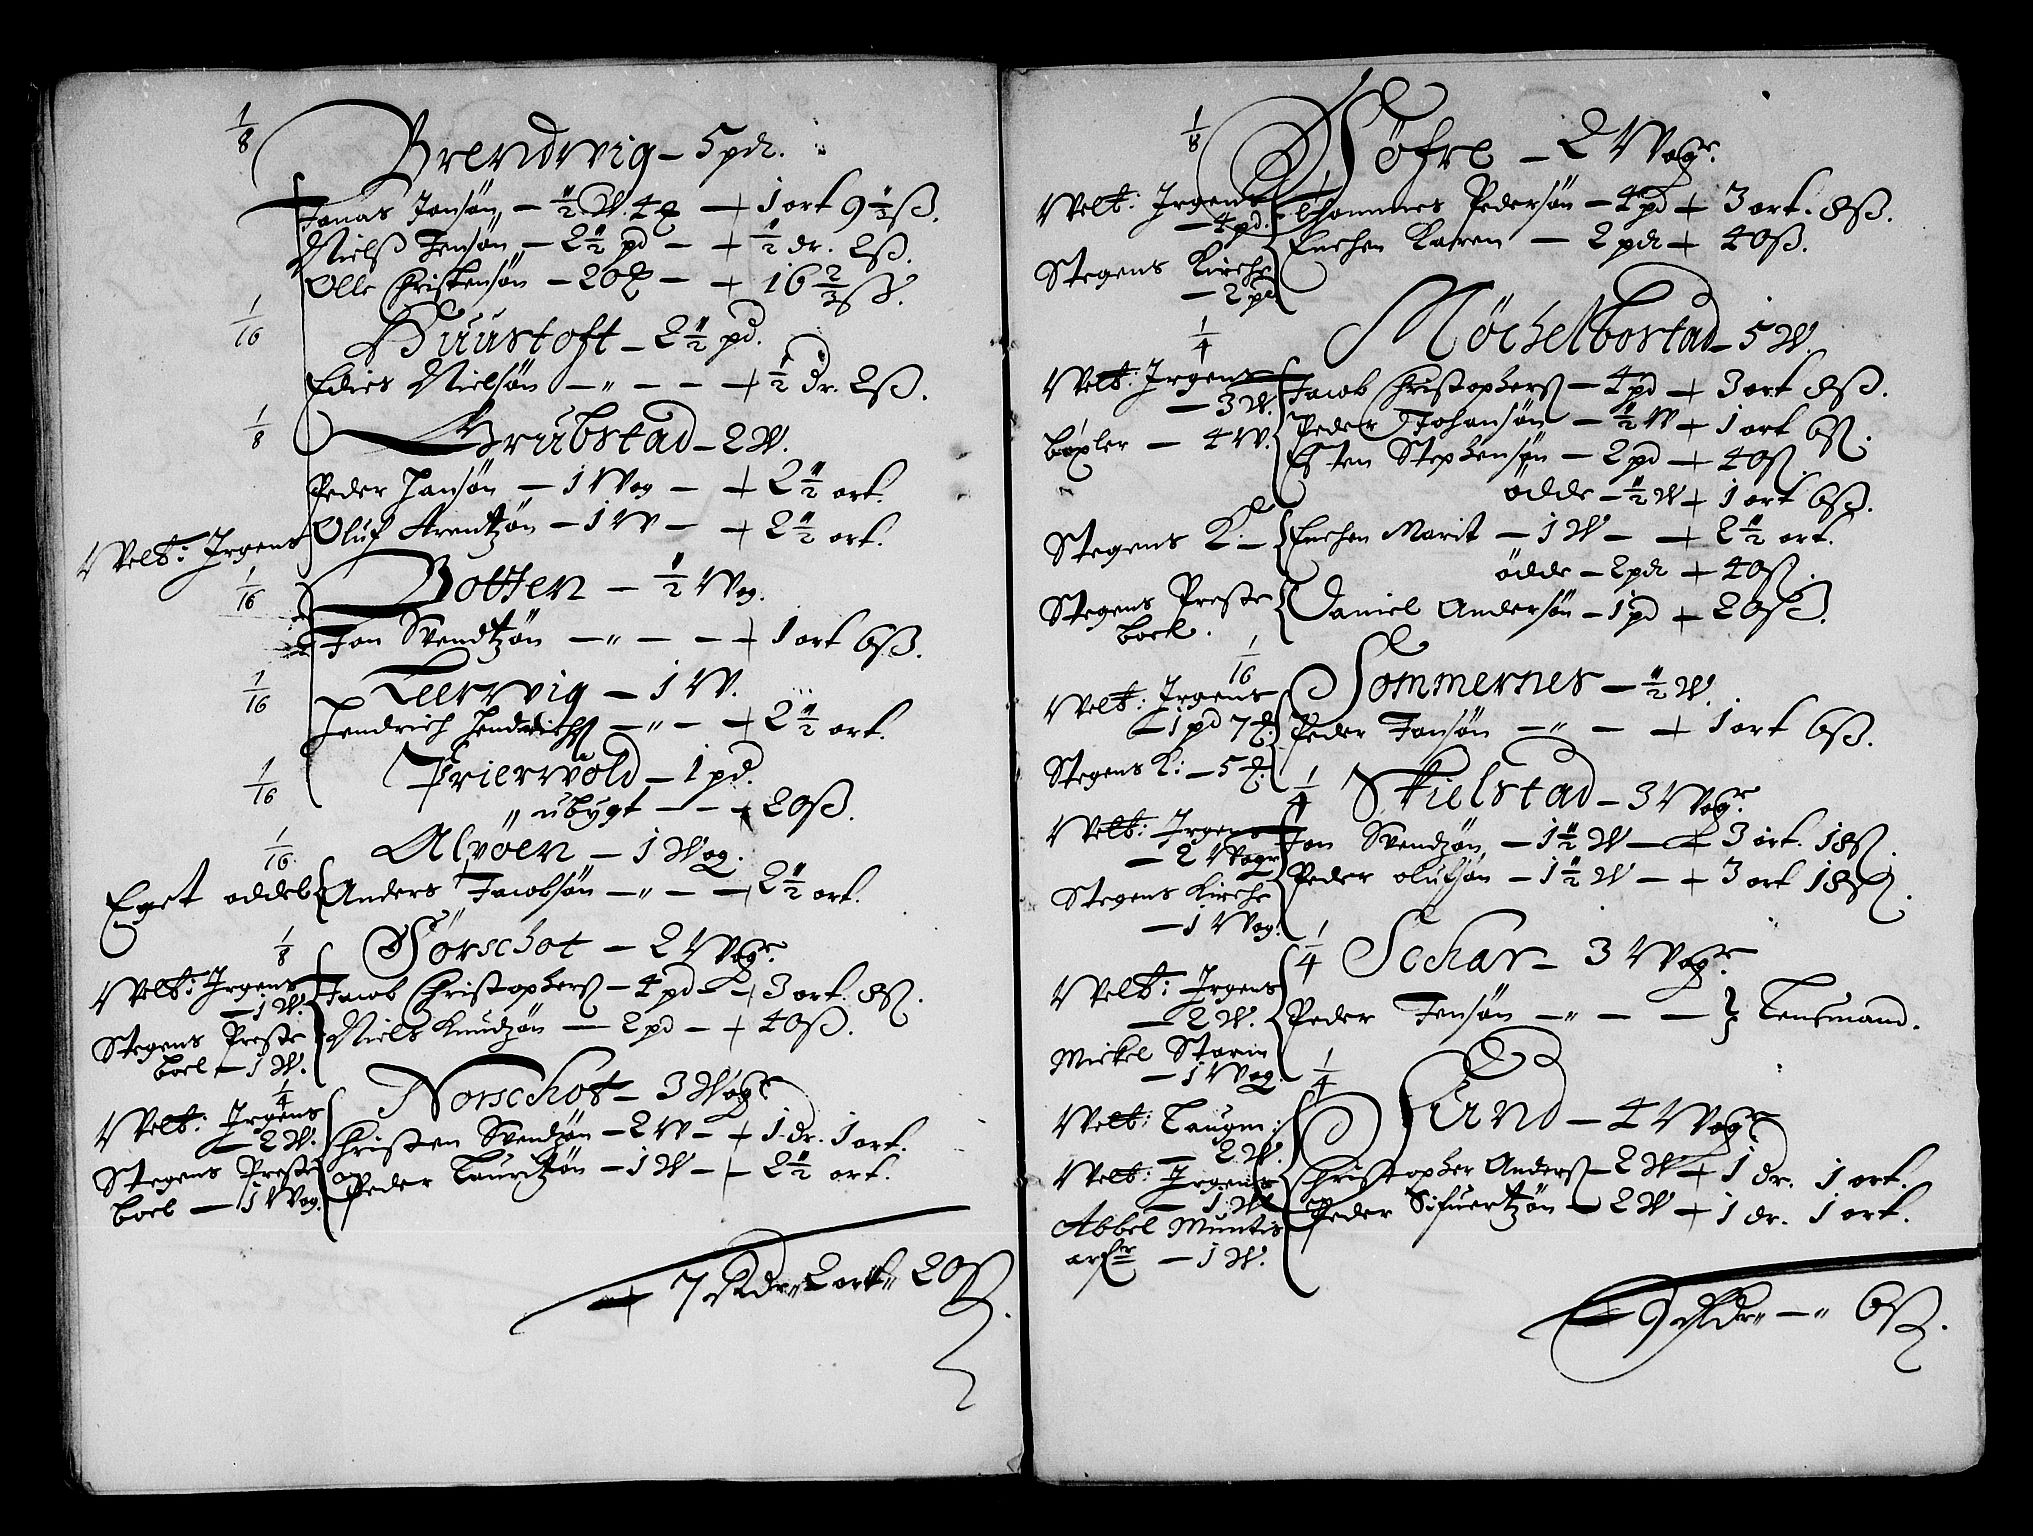 1/8 Brendvig – 5 pd.
Jonas Jonsøn – ½ W. 4 ₰ – + 1 ort 9½ ß.
Nielß Jensøn – 2½ pd – + ½ dr. 2 ß.
Olle Christensøn – 20 ₰ – + 16⅔ ß.
1/16 Huustoft – 2½ pd.
Edies Nielsøn – „ – – + ½ dr. 2 ß.
1/8 Grubstad – 2 W.
Peder Hansøn – 1 Wog – + 2½ ort.
Oluf Arentzøn – 1 W – + 2½ ort.
Velb: Jrgens
1/16 Botten – ½ Wog.
Jon Svendtzøn – „ – – + 1 ort 6 ß.
1/16 Leervig – 1 W.
Hendrich Hendrichß – „ – + 2½ ort.
1/16 Prierwold – 1 pd.
„ ubygt – – + 20 ß.
1/16 Alvöen – 1 Wog.
Eget oddeb Anders Jacobsøn – „ – – + 2½ ort.
1/8 Sörschot – 2 Wogr.
Velb: Jrgens – 1 W. Jacob Christophersß – 4 pd – + 3 ort. 8 ß.
Stegens Preste boel – 1 W. Niels Knudzøn – 2 pd – + 40 ß.
1/4 Norschot – 3 Wogr
Velb: Jrgens – 2 W. Christen Svendzøn – 2 W – + 1 dr. 1 ort.
Stegens Preste boel – 1 Wog. Peder Lauritzøn – 1 W – + 2½ ort.
+ 7 Rdr „ 2 ort „ 20 ß.
1/8 Söfre – 2 Wogr.
Velb: Jrgens – 4 pd. Thommes Pedersøn – 4 pd + 3 ort. 8 ß.
Stegens Kirche – 2 pd Enchen Karen – 2 pd + 40 ß.
1/4 Möchelbostad – 5 W
Velb: Jrgens – 3 W. Jacob Christophersß – 4 pd + 3 ort 8 ß.
böxler – 4 W. Peder Johansøn – ½ W + 1 ort 6 ß.
Esten Stephensøn – 2 pd + 40 ß.
ödde – ½ W + 1 ort 6 ß.
Stegens K: – Enchen Marit – 1 W – + 2½ ort.
ödde – 2 pd + 40 ß.
Stegens Preste boel. Daniel Andersøn – 1 pd + 20 ß.
1/16 Sommernes – ½ W.
Velb: Jrgens – 1 pd 7 ₰. Peder Jonsøn – „ – + 1 ort 6 ß.
Stegens K: – 5 ₰.
1/4 Skielstad – 3 Wogr.
Velb: Jrgens – 2 Wogr Jon Svendzøn – 1½ W – + 3 ort. 18 ß.
Stegens Kirche – 1 Wog. Peder olufsøn – 1½ W – + 3 ort 18 ß.
1/4 Schar – 3 Wogr.
Velb: Jrgens – 2 W. Peder Jensøn – „ – – } Lensmand.
Mickel Storm – 1 Wog.
1/4 Sund – 4 Wogr
Velb: Laugm: – 2 W.
Velb: Jrgens – 1 W Christopher Andersß – 2 W + 1 dr. 1 ort.
Abbel Muntis arfr – 1 W. Peder Sifuertzøn – 2 W + 1 dr. 1 ort.
+ 9 Rdr „ – „ 6 ß.